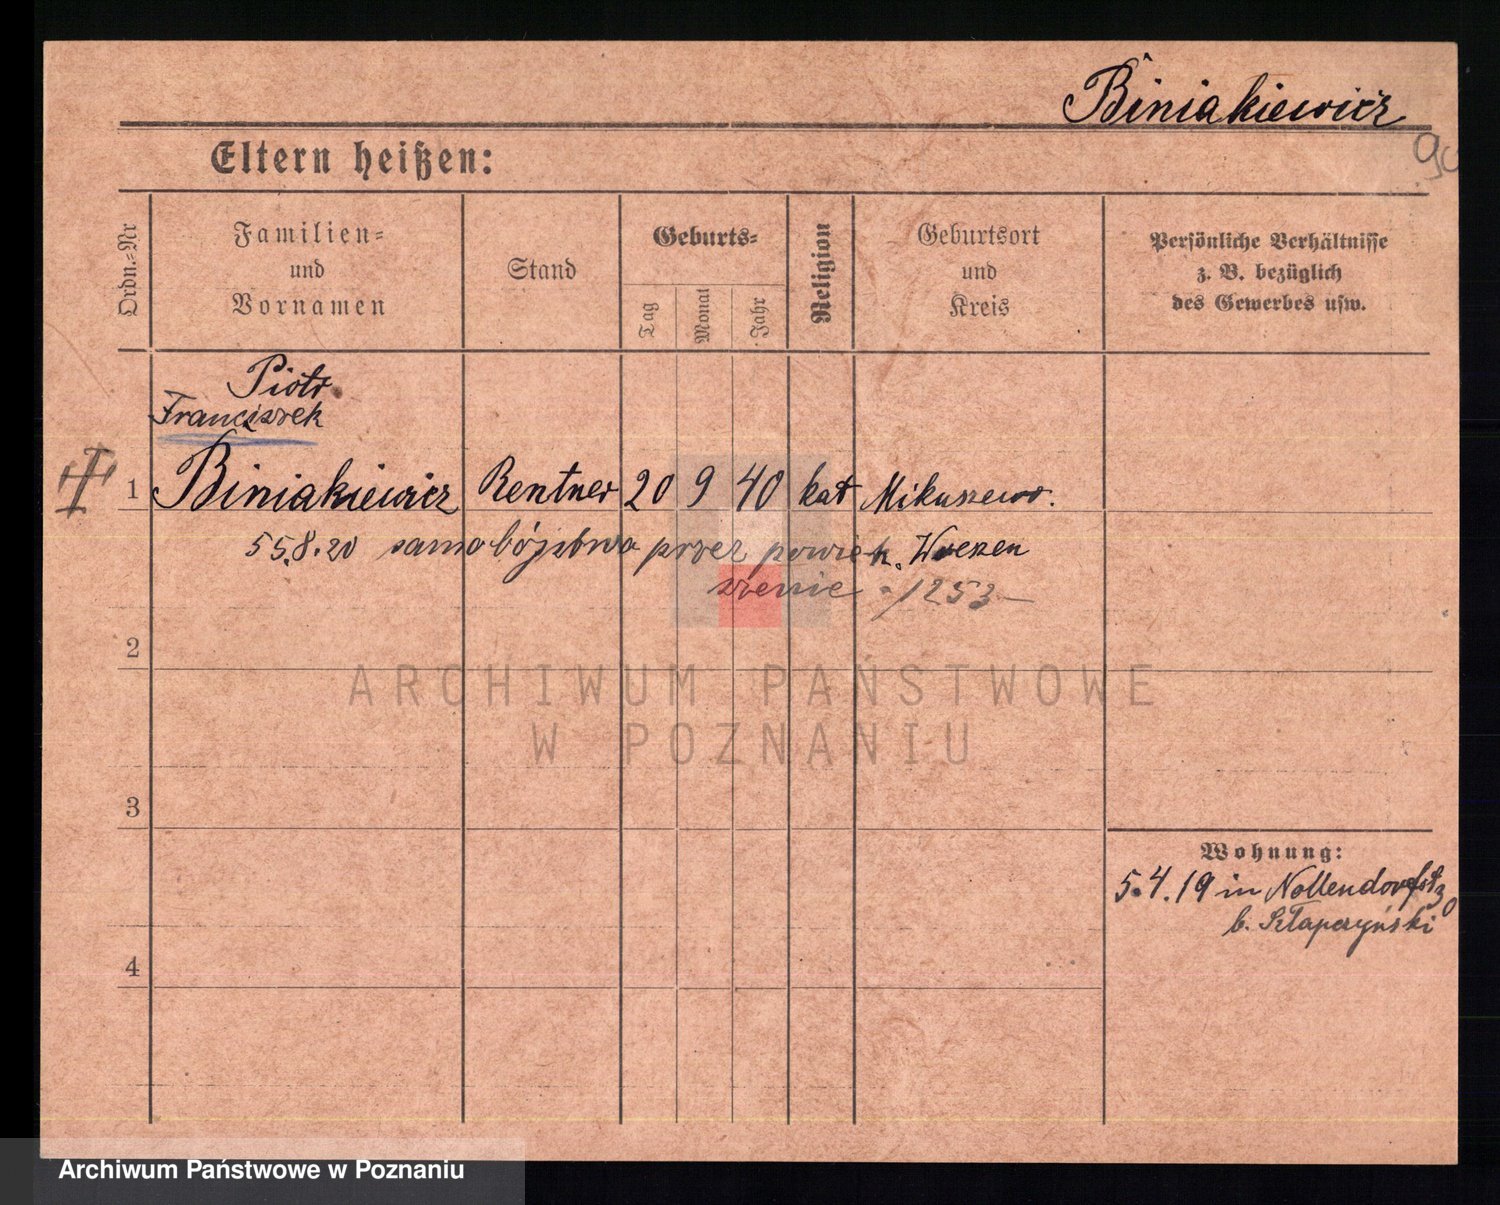 Biniakiewicz
90
Eltern heißen:
Ordn.=Nr
Familien=
und
Vornamen
Stand
Geburts=
Tag
Monat
Jahr
Religion
Geburtsort
und
Kreis
Persönliche Verhältnisse
z. B. bezüglich
des Gewerbes usw.
Piotr
Franciszek
1 Biniakiewicz Rentner 20 9 40 kat Mikuszewo.
5.8.20 samobójstwo przez powie Wreschen
szenie 1253
2
3
4
Wohnung:
5.4.19 in Nollendorfstr
b. Szłapczyński
ARCHIWUM PAŃSTWOWE
W POZNANIU
Archiwum Państwowe w Poznaniu